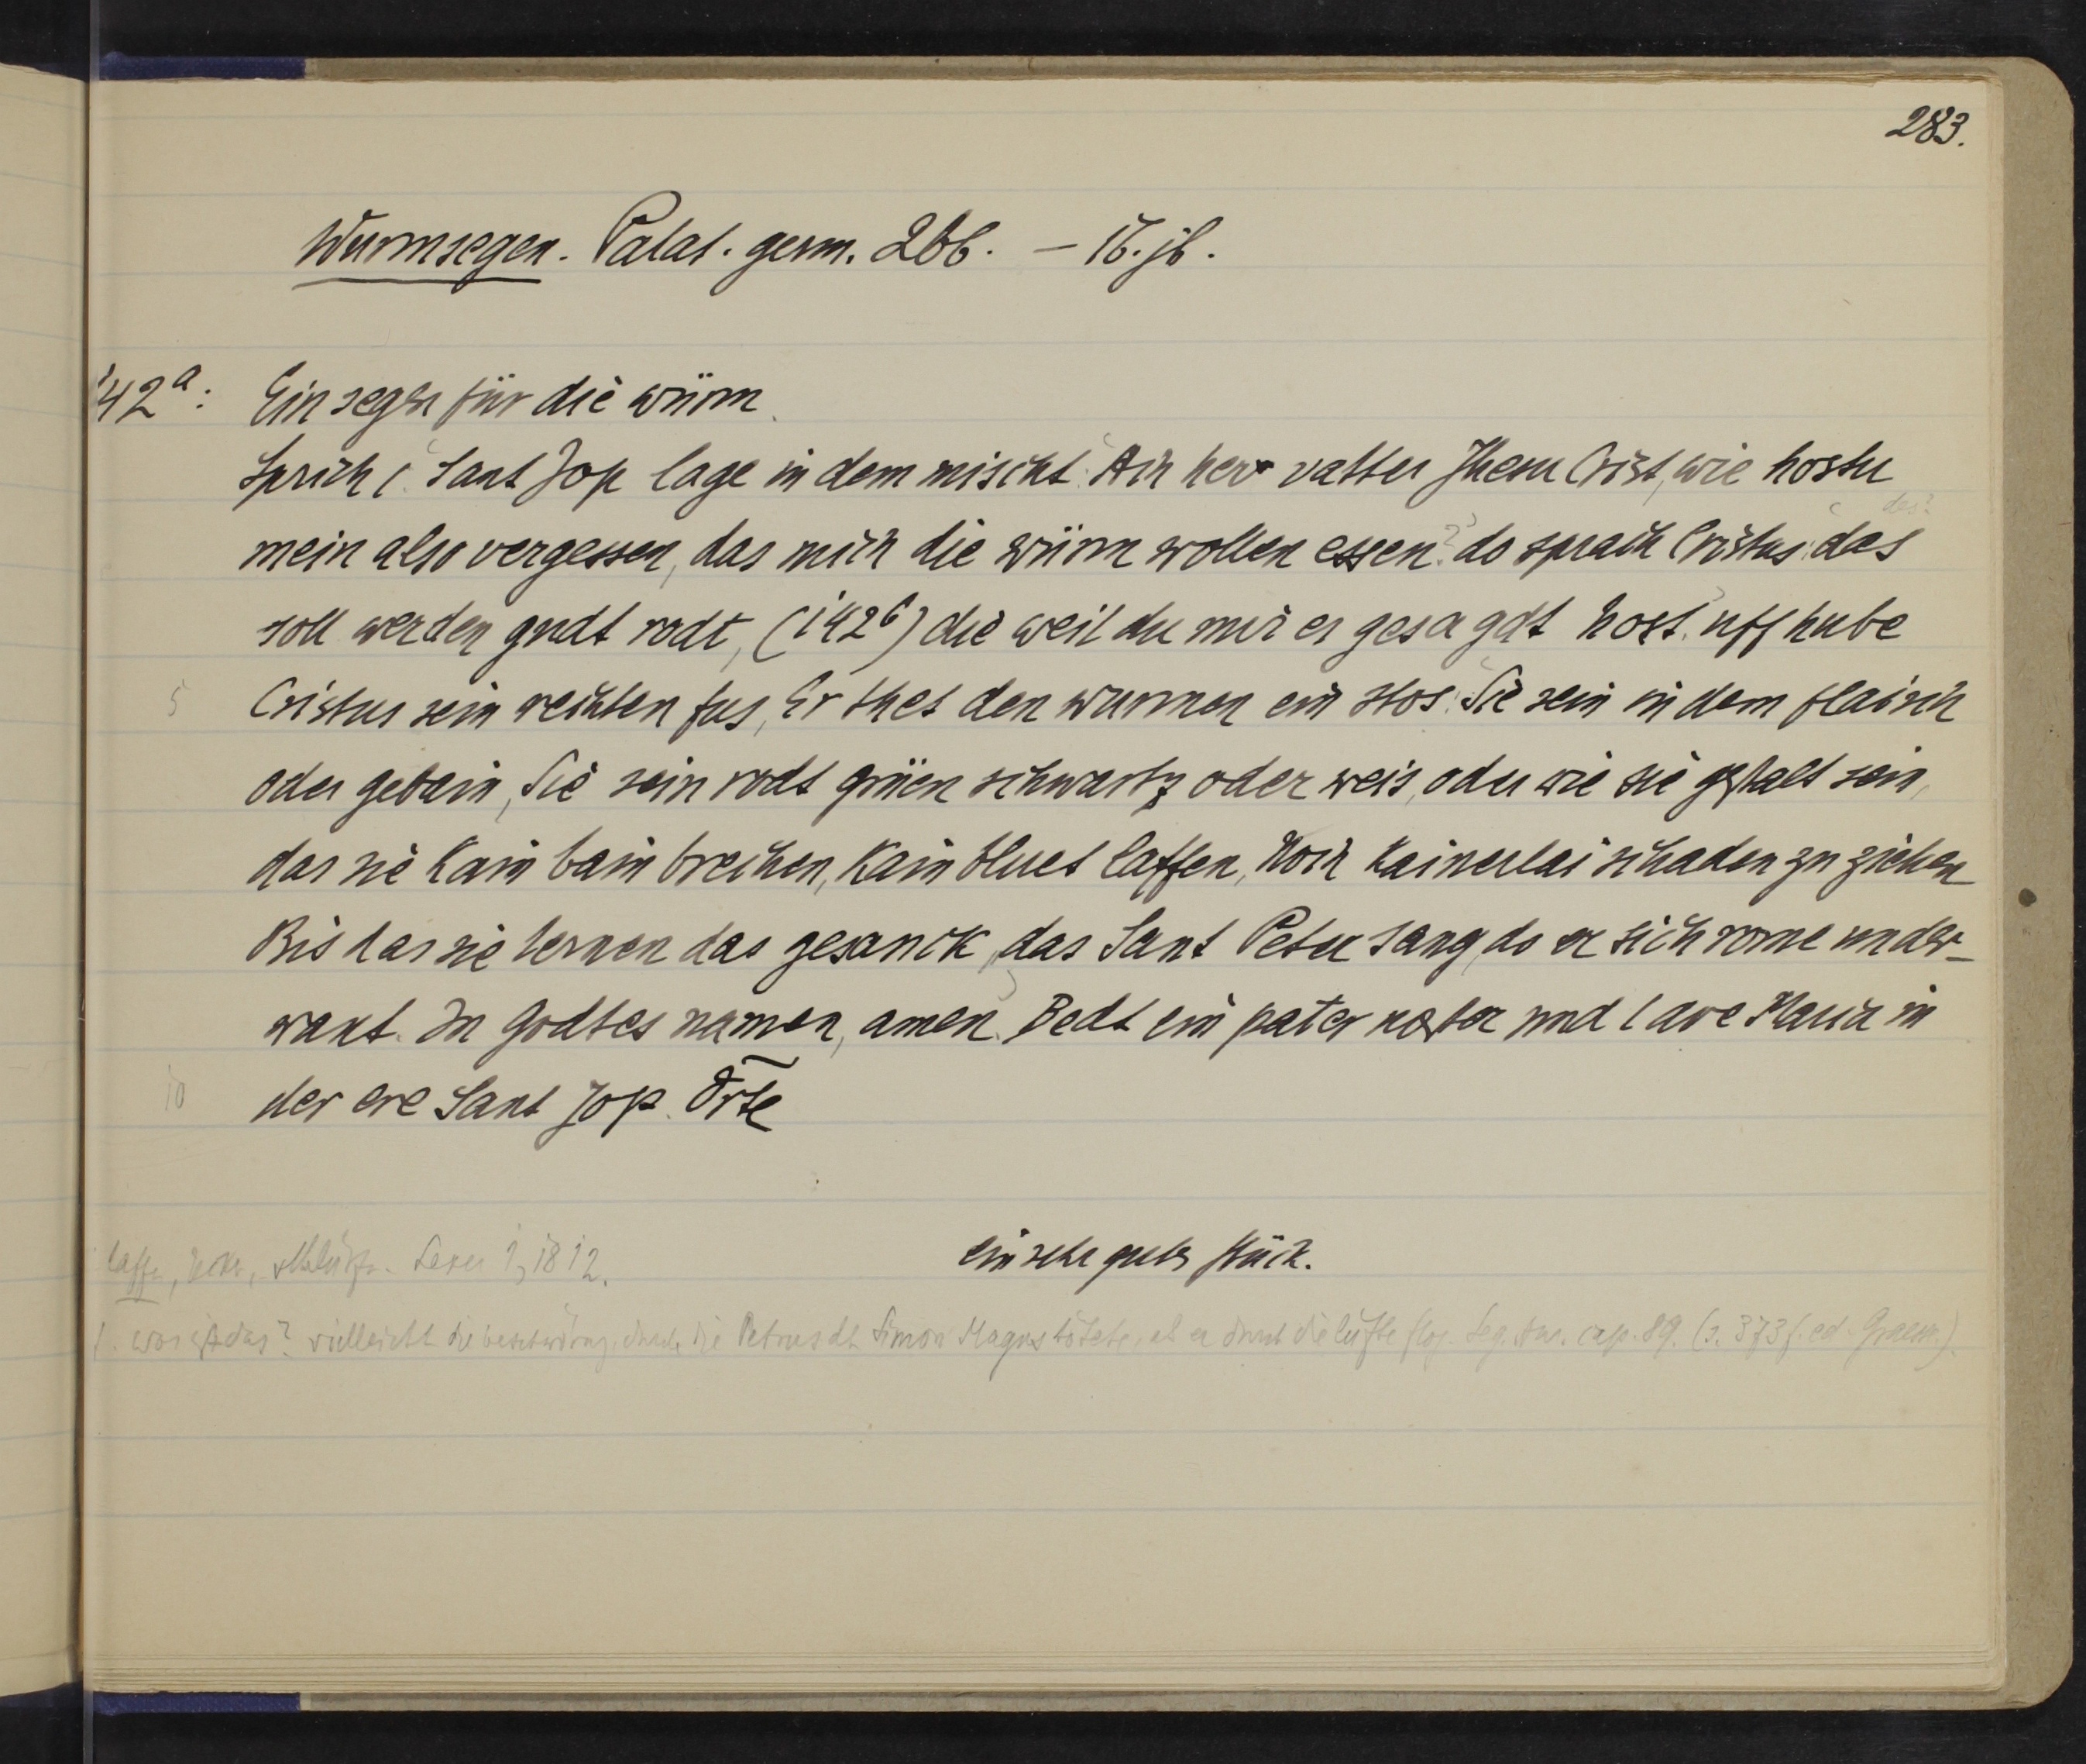 283.
Wurmsegen. Palat. germ. 266. – 16. jh.
142ᵃ: Ein segen für die würm.
Sprich: Sant Jop lage in dem mischt. 'Ach herr vatter Jhesu Crist, wie hostu
des?
mein also vergessen, das mich die würm wollen essen?' do sprach Cristus: 'das
soll werden gudt rodt, (142ᵇ) die weil du mir es gesagdt host.' uff hube
5 Cristus sein rechten fus, Er thet den wurmen ein stos: 'Sie sein in dem flaisch
oder gebain, Sie sein rodt grüen schwartz oder weis, oder wie sie gestalt sein,
das sie kain bain brechen, kain bluet laffen, Noch kainerlai schaden zu ziehen
Bis das sie lernen das gesanck, das Sant Peter sang, do er sich rome under-
want. In Godtes namen, amen.' Bedt ein pater noster und 1 ave Maria in
10 der ere Sant Jop. Orte
ein sehr guts stück.
laffen, lecken, schlürfen. Lexer 1, 1812.
was ist das? vielleicht die beschwörung, durch die Petrus den Simon Magus tötete, als er durch die lüfte flog. Leg. Aur. cap. 89. (s. 373 f. ed. Graesse).